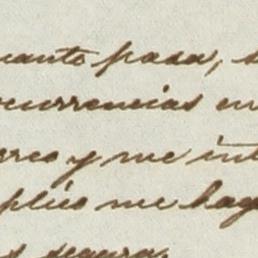 uanto pasa, s
currencias en
rreo y me int
plico me hag
s segura.